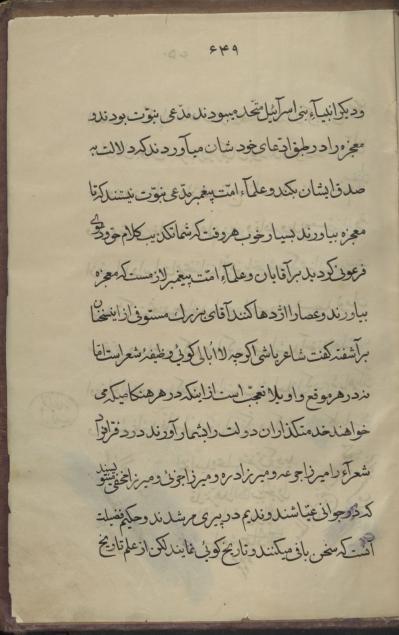 ۶۴۹
و دیگر انبیآء بنی اسرآئیل متّحد میبودند مدّعی نبوّت بودند و
معجزه را در طبق ادّعای خودشان میآوردند که دلالت به
صدق ایشان بکند و علمآء امّت پیغمبر مدّعی نبوّت نیستند که تا
معجزه بیاورند بسیار خوب هر وقت که شما تکذیب کلام خود و
فرعونی کردید بر آقایان و علمآء امّت پیغمبر لازمست که معجزه
بیاورند و عصا را اژدها کنند آقای بزرك مستوفی از این سخنان
بر آشفته گفت شاعر باشی اگرچه لا ابالی کوئی وظیفهٔ شعر است امّا
نه در هر موقع و اویلا تعجّب است از اینکه در هر هنکامیکه می
خواهند خدمتکذاران دولت را بشمار آورند در دفتر
شعرآء را میرزا جوعه و میرزا دره و میرزا جنّی و میرزا مخفی
که در جوانی عیّاشند و ندیم در پیری مرشدند و حکیم فضیلت
است که سخن بافی میکنند و تاریخ کوئی نمایند لکن از علم تاریخ